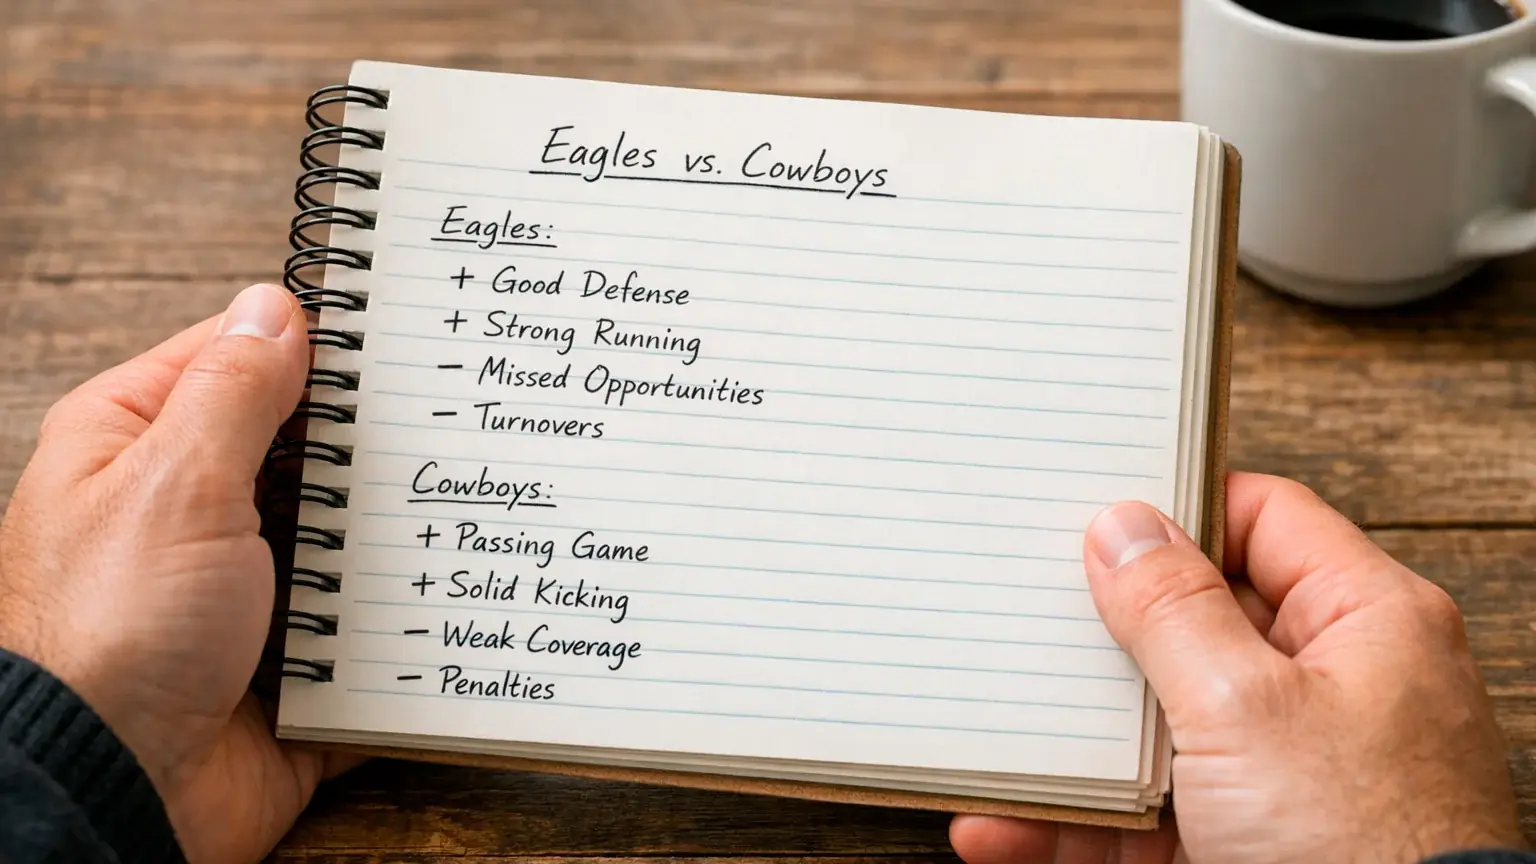 Eagles vs. Cowboys
Eagles:
+ Good Defense
+ Strong Running
- Missed Opportunities
- Turnovers
Cowboys:
+ Passing Game
+ Solid Kicking
- Weak Coverage
- Penalties